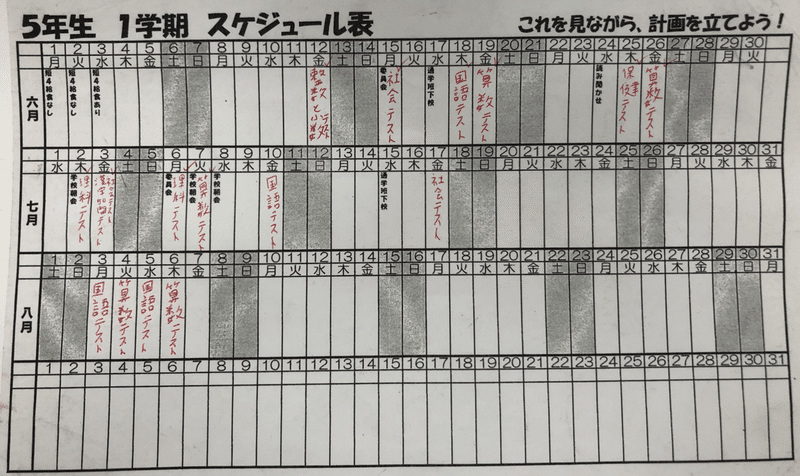 5年生 1学期 スケジュール表
これを見ながら、計画を立てよう！
1 2 3 4 5 6 7 8 9 10 11 12 13 14 15 16 17 18 19 20 21 22 23 24 25 26 27 28 29 30
月 火 水 木 金 土 日 月 火 水 木 金 土 日 月 火 水 木 金 土 日 月 火 水 木 金 土 日 月 火
六月
短4給食なし
短4給食なし
短4給食あり
整数と小数テスト
委員会
社会テスト
通学班下校
国語テスト
算数テスト
読み聞かせ
保健テスト
算数テスト
1 2 3 4 5 6 7 8 9 10 11 12 13 14 15 16 17 18 19 20 21 22 23 24 25 26 27 28 29 30 31
水 木 金 土 日 月 火 水 木 金 土 日 月 火 水 木 金 土 日 月 火 水 木 金 土 日 月 火 水 木 金
七月
学校朝会
理科テスト
社会テスト
漢字50問テスト
委員会
理科テスト
学校朝会
算数テスト
学校朝会
国語テスト
通学班下校
社会テスト
1 2 3 4 5 6 7 8 9 10 11 12 13 14 15 16 17 18 19 20 21 22 23 24 25 26 27 28 29 30 31
土 日 月 火 水 木 金 土 日 月 火 水 木 金 土 日 月 火 水 木 金 土 日 月 火 水 木 金 土 日 月
八月
国語テスト
算数テスト
国語テスト
算数テスト
1 2 3 4 5 6 7 8 9 10 11 12 13 14 15 16 17 18 19 20 21 22 23 24 25 26 27 28 29 30 31